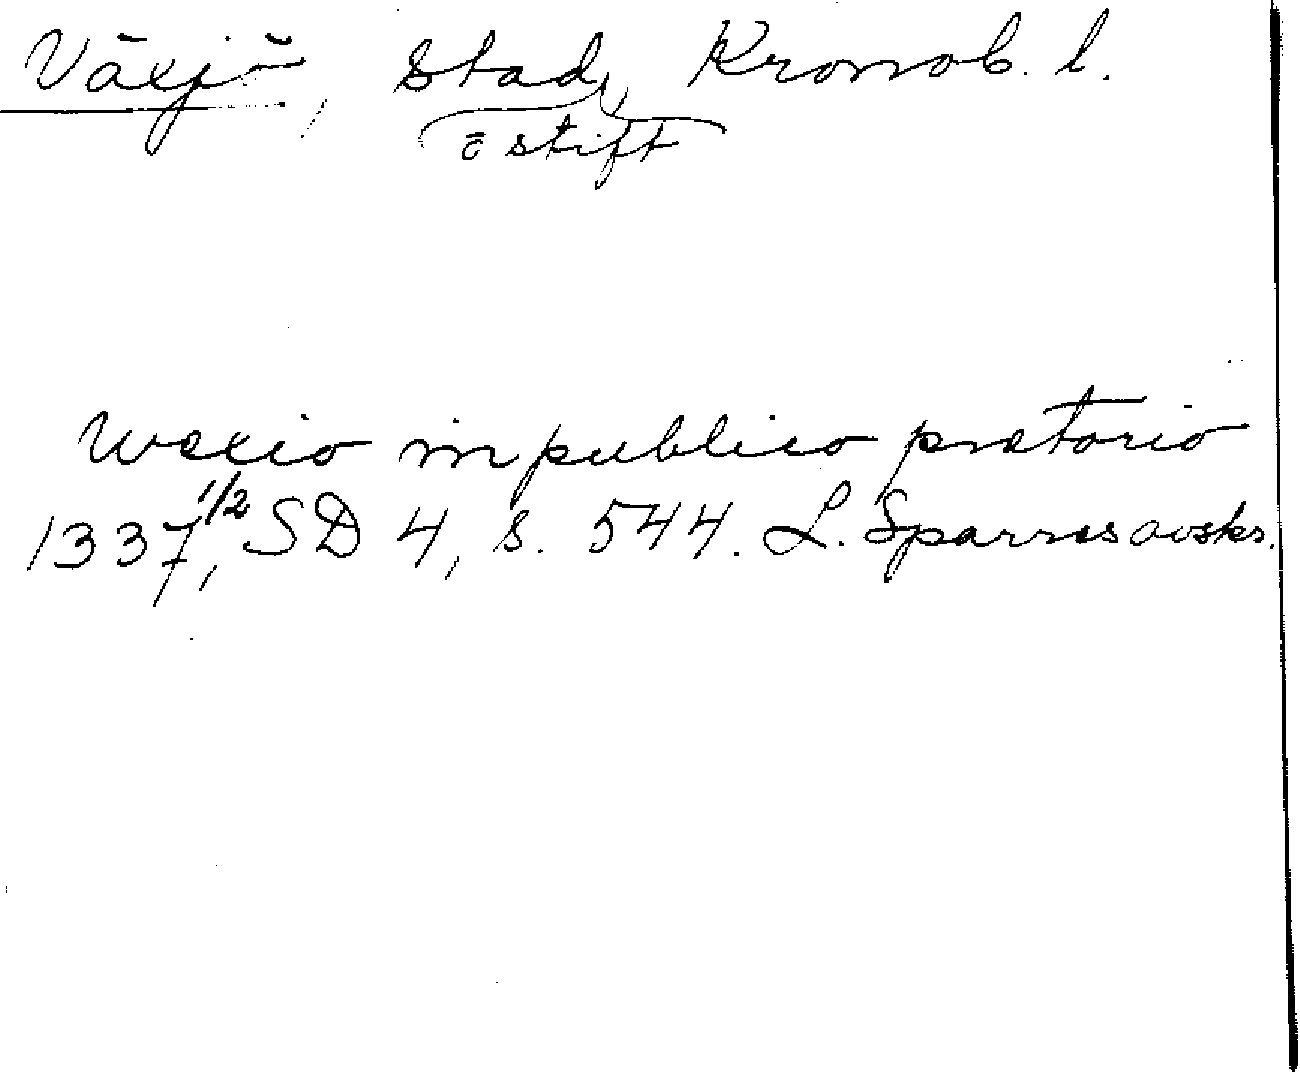 Växjö, Stad, Kronob. l.
o stift
Wexio in publico pretorio
1337 1/2, SD 4, s. 544. L. Sparres avskr.